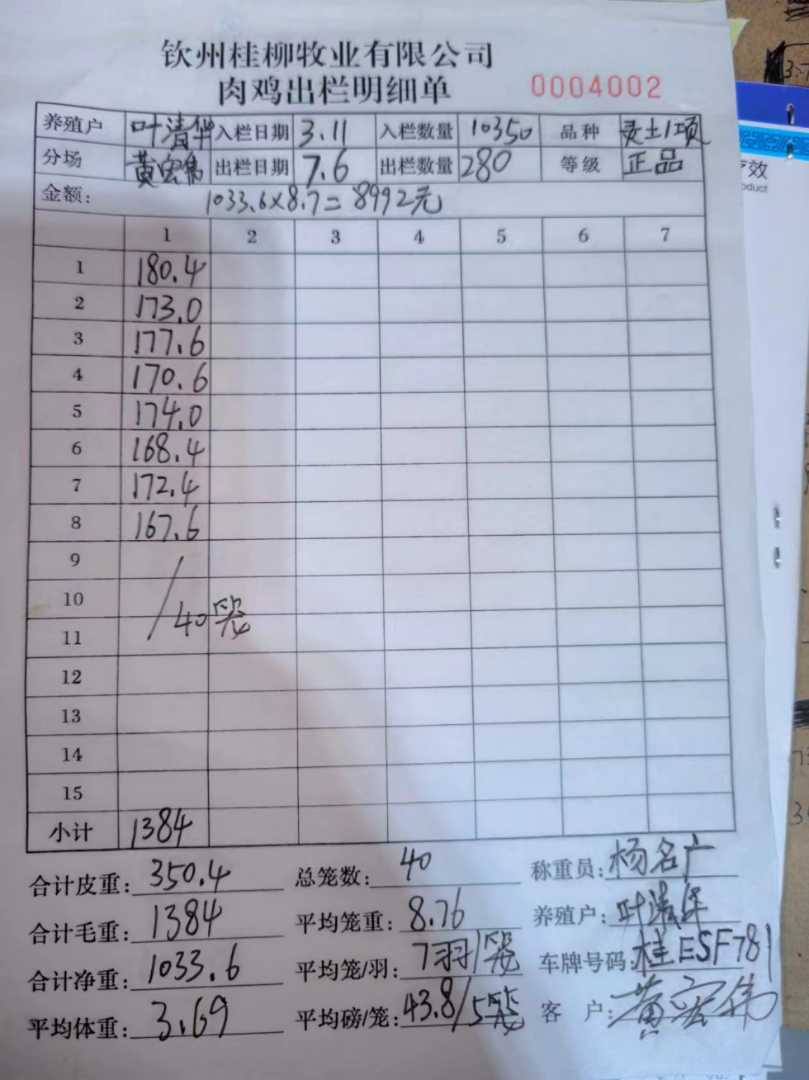 钦州桂柳牧业有限公司
肉鸡出栏明细单 0004002
养殖户 叶清华 入栏日期 3.11 入栏数量 10350 品种 麦土1项
分场 黄宏伟 出栏日期 7.6 出栏数量 280 等级 正品
金额: 1033.6×8.7=8992元
1 2 3 4 5 6 7
1 180.4
2 173.0
3 177.6
4 170.6
5 174.0
6 168.4
7 172.4
8 167.6
9
10
11 40笼
12
13
14
15
小计 1384
合计皮重: 350.4 总笼数: 40 称重员: 杨名广
合计毛重: 1384 平均笼重: 8.76 养殖户: 叶清华
合计净重: 1033.6 平均笼/羽: 7羽/笼 车牌号码: 桂ESF781
平均体重: 3.69 平均磅/笼: 43.8/5笼 客户: 黄宏伟